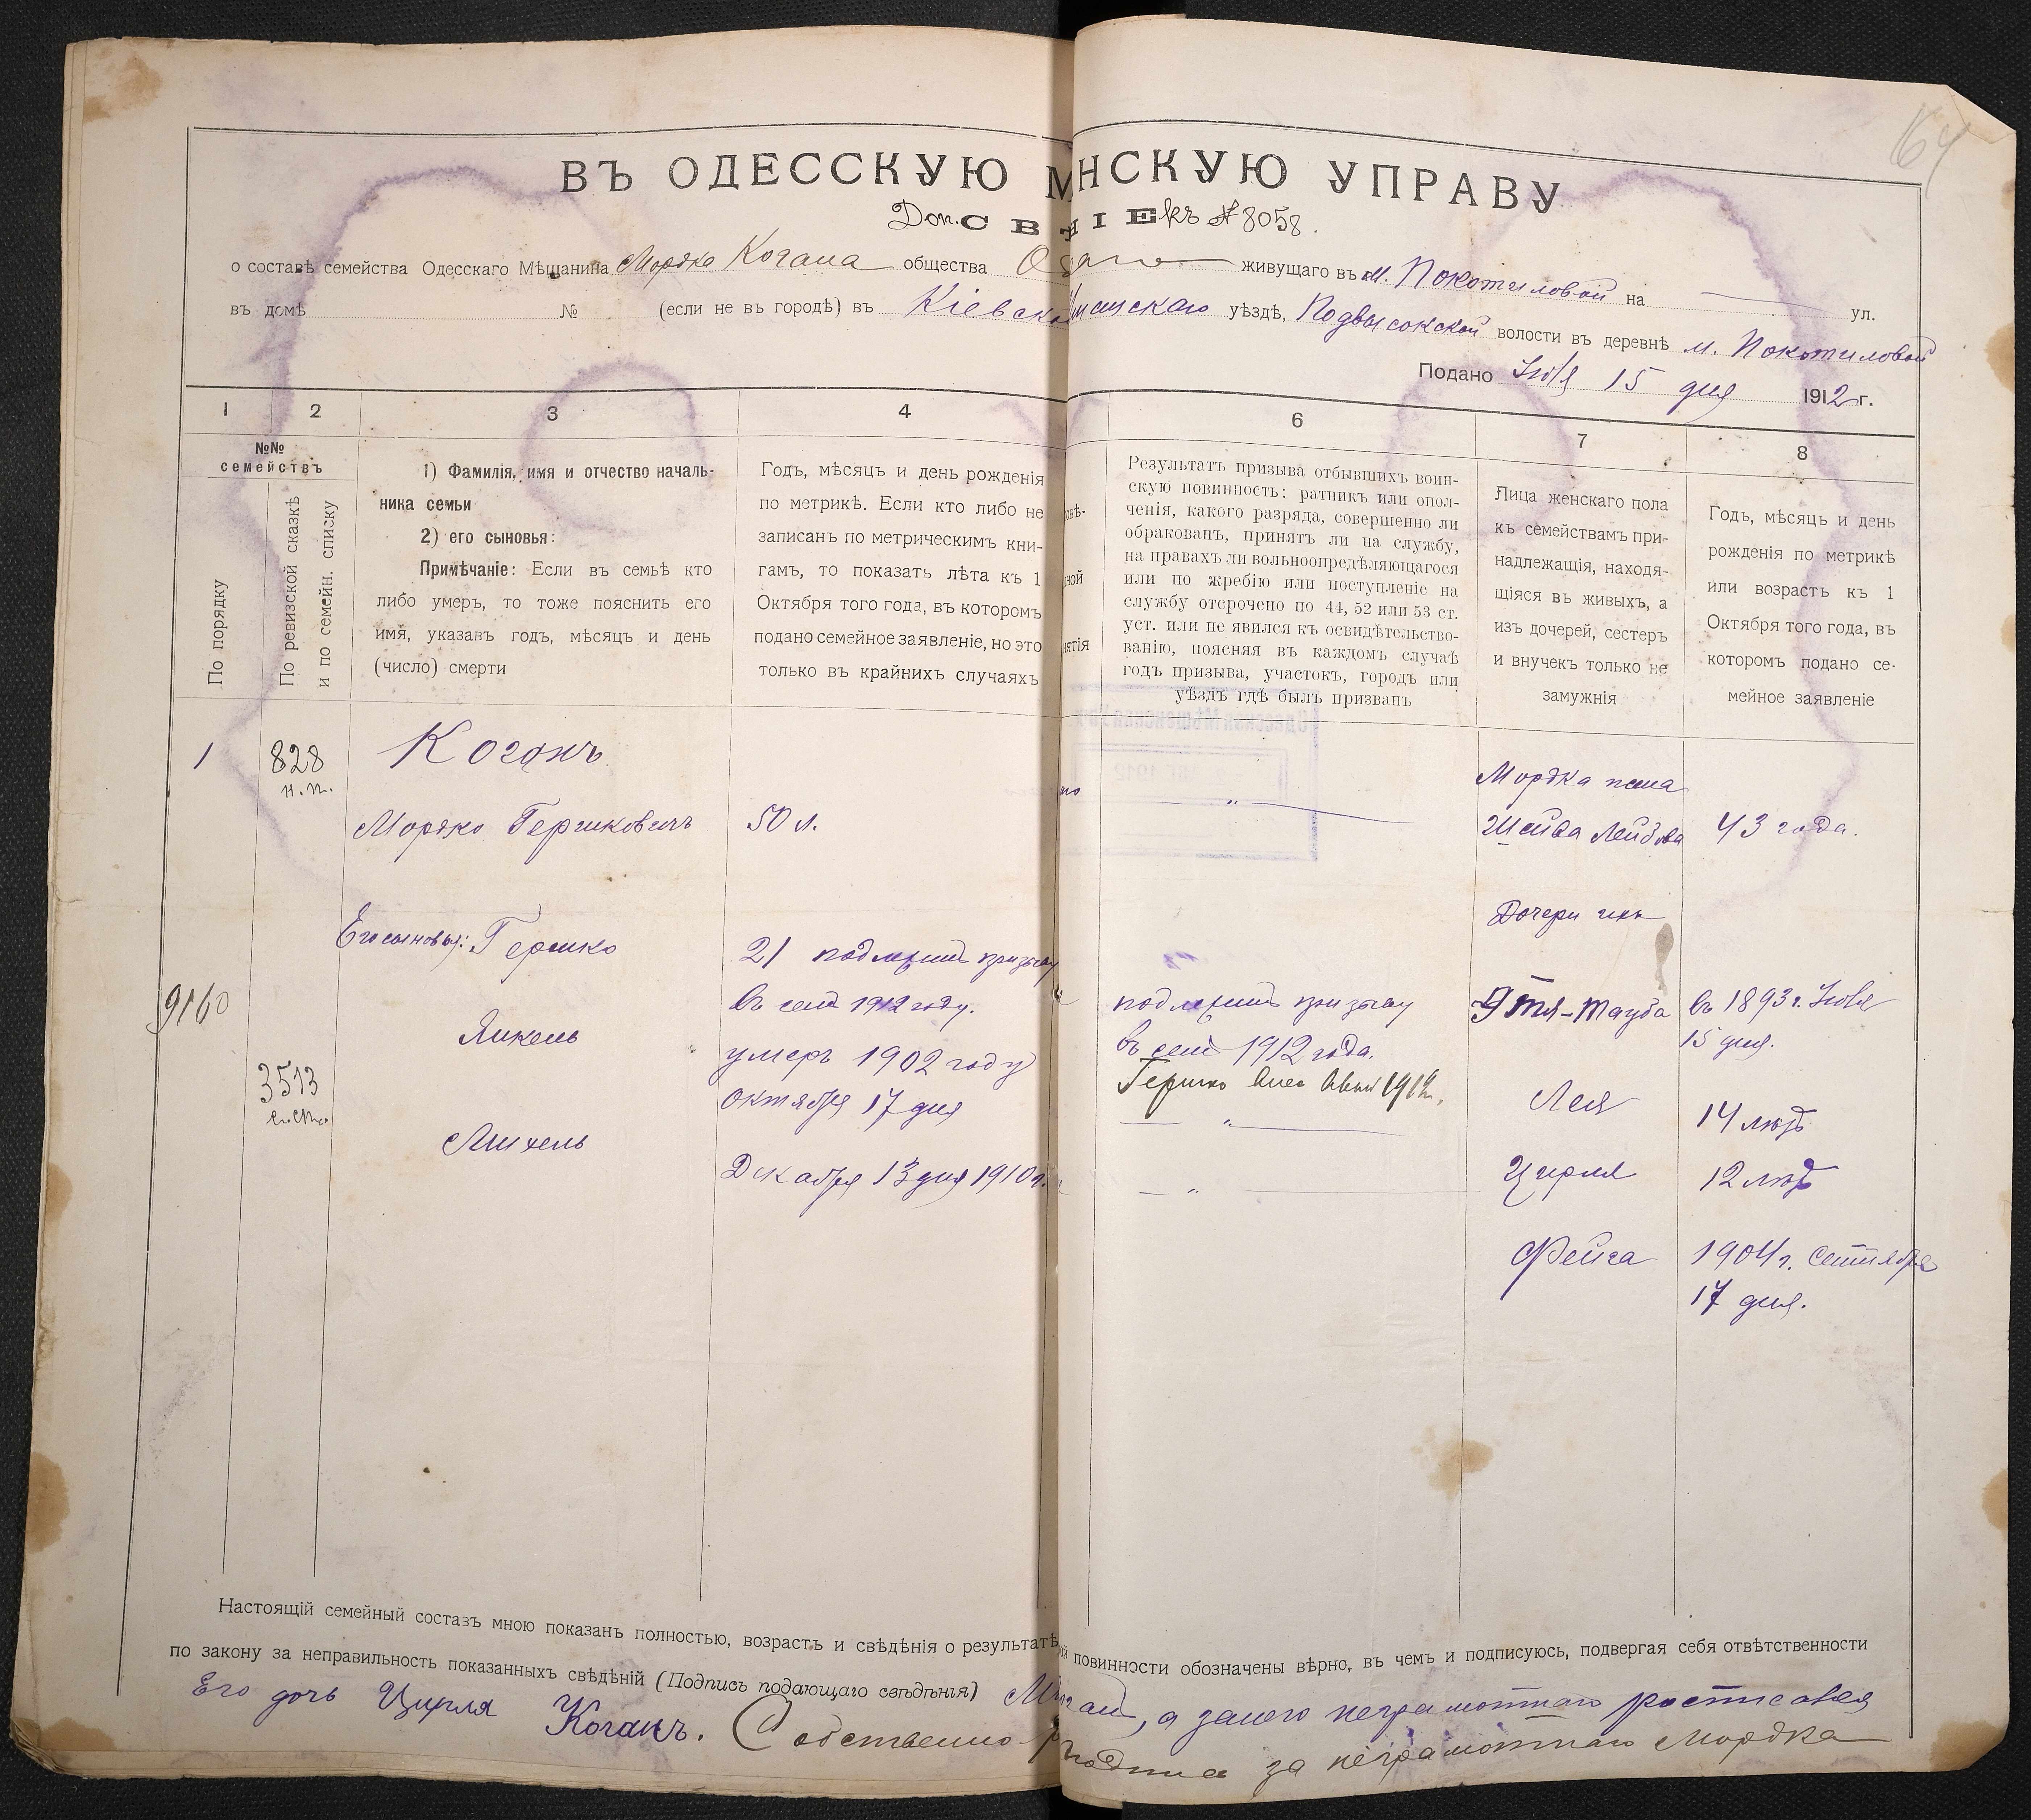 164
ВЪ ОДЕССКУЮ М НСКУЮ УПРАВУ
Доп. СВ НІЕ къ № 8058.
о составѣ семейства Одесскаго Мѣщанина Мордка Когана общества живущаго въ м. Покотиловой на ул.
въ домѣ № (если не въ городѣ) въ Кіевско уѣздѣ, Подвысокской волости въ деревнѣ м. Покотиловой
Подано 15 дня 1912 г.
1 2 3 4 6 7 8
№№ семействъ
По порядку
По ревизской сказкѣ
и по семейн. списку
1) Фамилія, имя и отчество началь-
ника семьи
2) его сыновья:
Примѣчаніе: Если въ семьѣ кто
либо умеръ, то тоже пояснить его
имя, указавъ годъ, мѣсяцъ и день
(число) смерти
Годъ, мѣсяцъ и день рожденія
по метрикѣ. Если кто либо не
записанъ по метрическимъ кни-
гамъ, то показать лѣта къ 1
Октября того года, въ которомъ
подано семейное заявленіе, но это
только въ крайнихъ случаяхъ
Результатъ призыва отбывшихъ воин-
скую повинность: ратникъ или опол-
ченія, какого разряда, совершенно ли
обракованъ, принятъ ли на службу,
на правахъ ли вольноопредѣляющагося
или по жребію или поступленіе на
службу отсрочено по 44, 52 или 53 ст.
уст. или не явился къ освидѣтельство-
ванію, поясняя въ каждомъ случаѣ
годъ призыва, участокъ, городъ или
уѣздъ гдѣ былъ призванъ
Лица женскаго пола
къ семействамъ при-
надлежащія, находя-
щіяся въ живыхъ, а
изъ дочерей, сестеръ
и внучекъ только не
замужнія
Годъ, мѣсяцъ и день
рожденія по метрикѣ
или возрастъ къ 1
Октября того года, въ
которомъ подано се-
мейное заявленіе
1 828 Коганъ
н.п.
Мордка жена
Мордко Гершковичъ 50 л. " Шейва Лейбова 43 года.
Дочери ихъ
Его сыновья: Гершко 21 подлежитъ призыву
въ семъ 1912 году.
подлежитъ призыву
въ семъ 1912 года.
Этя-Тауба въ 1893 г.
15 дня.
9160
Янкель умеръ 1902 году
Октября 17 дня
3513
Гершко
"
Лея 14 лѣтъ
Михель Декабря 13 дня 1910 г. " Цирля 12 лѣтъ
Фейга 1904 г. Сентября
17 дня.
Настоящій семейный составъ мною показанъ полностью, возрастъ и свѣдѣнія о результатѣ ой повинности обозначены вѣрно, въ чемъ и подписуюсь, подвергая себя отвѣтственности
по закону за неправильность показанныхъ свѣдѣній (Подпись подающаго свѣдѣнія) , а за него неграмотнаго росписалея
Его дочь Цирля Коганъ. Собственно за неграмотнаго Мордка